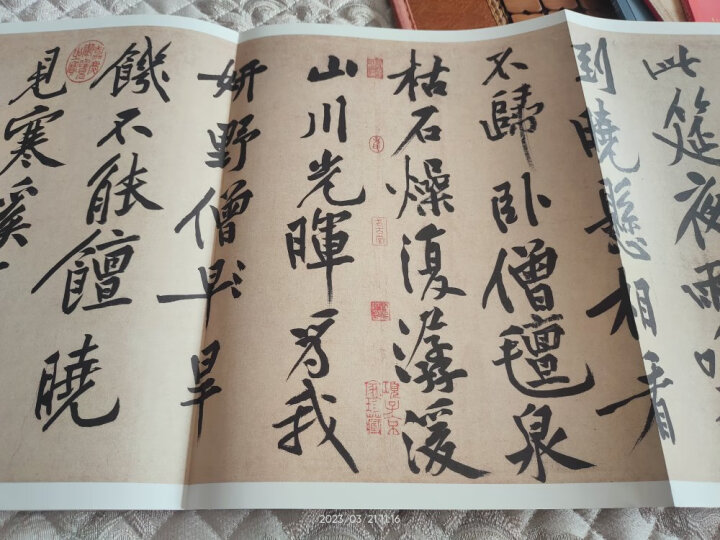 此筵夜雨鳴
到曉懸相看
不歸卧僧氈泉
枯石燥復潺湲
山川光暉為我
妍野僧早旱
饑不能饘曉
見寒溪
項子京家珍藏
2023/03/21 11:16